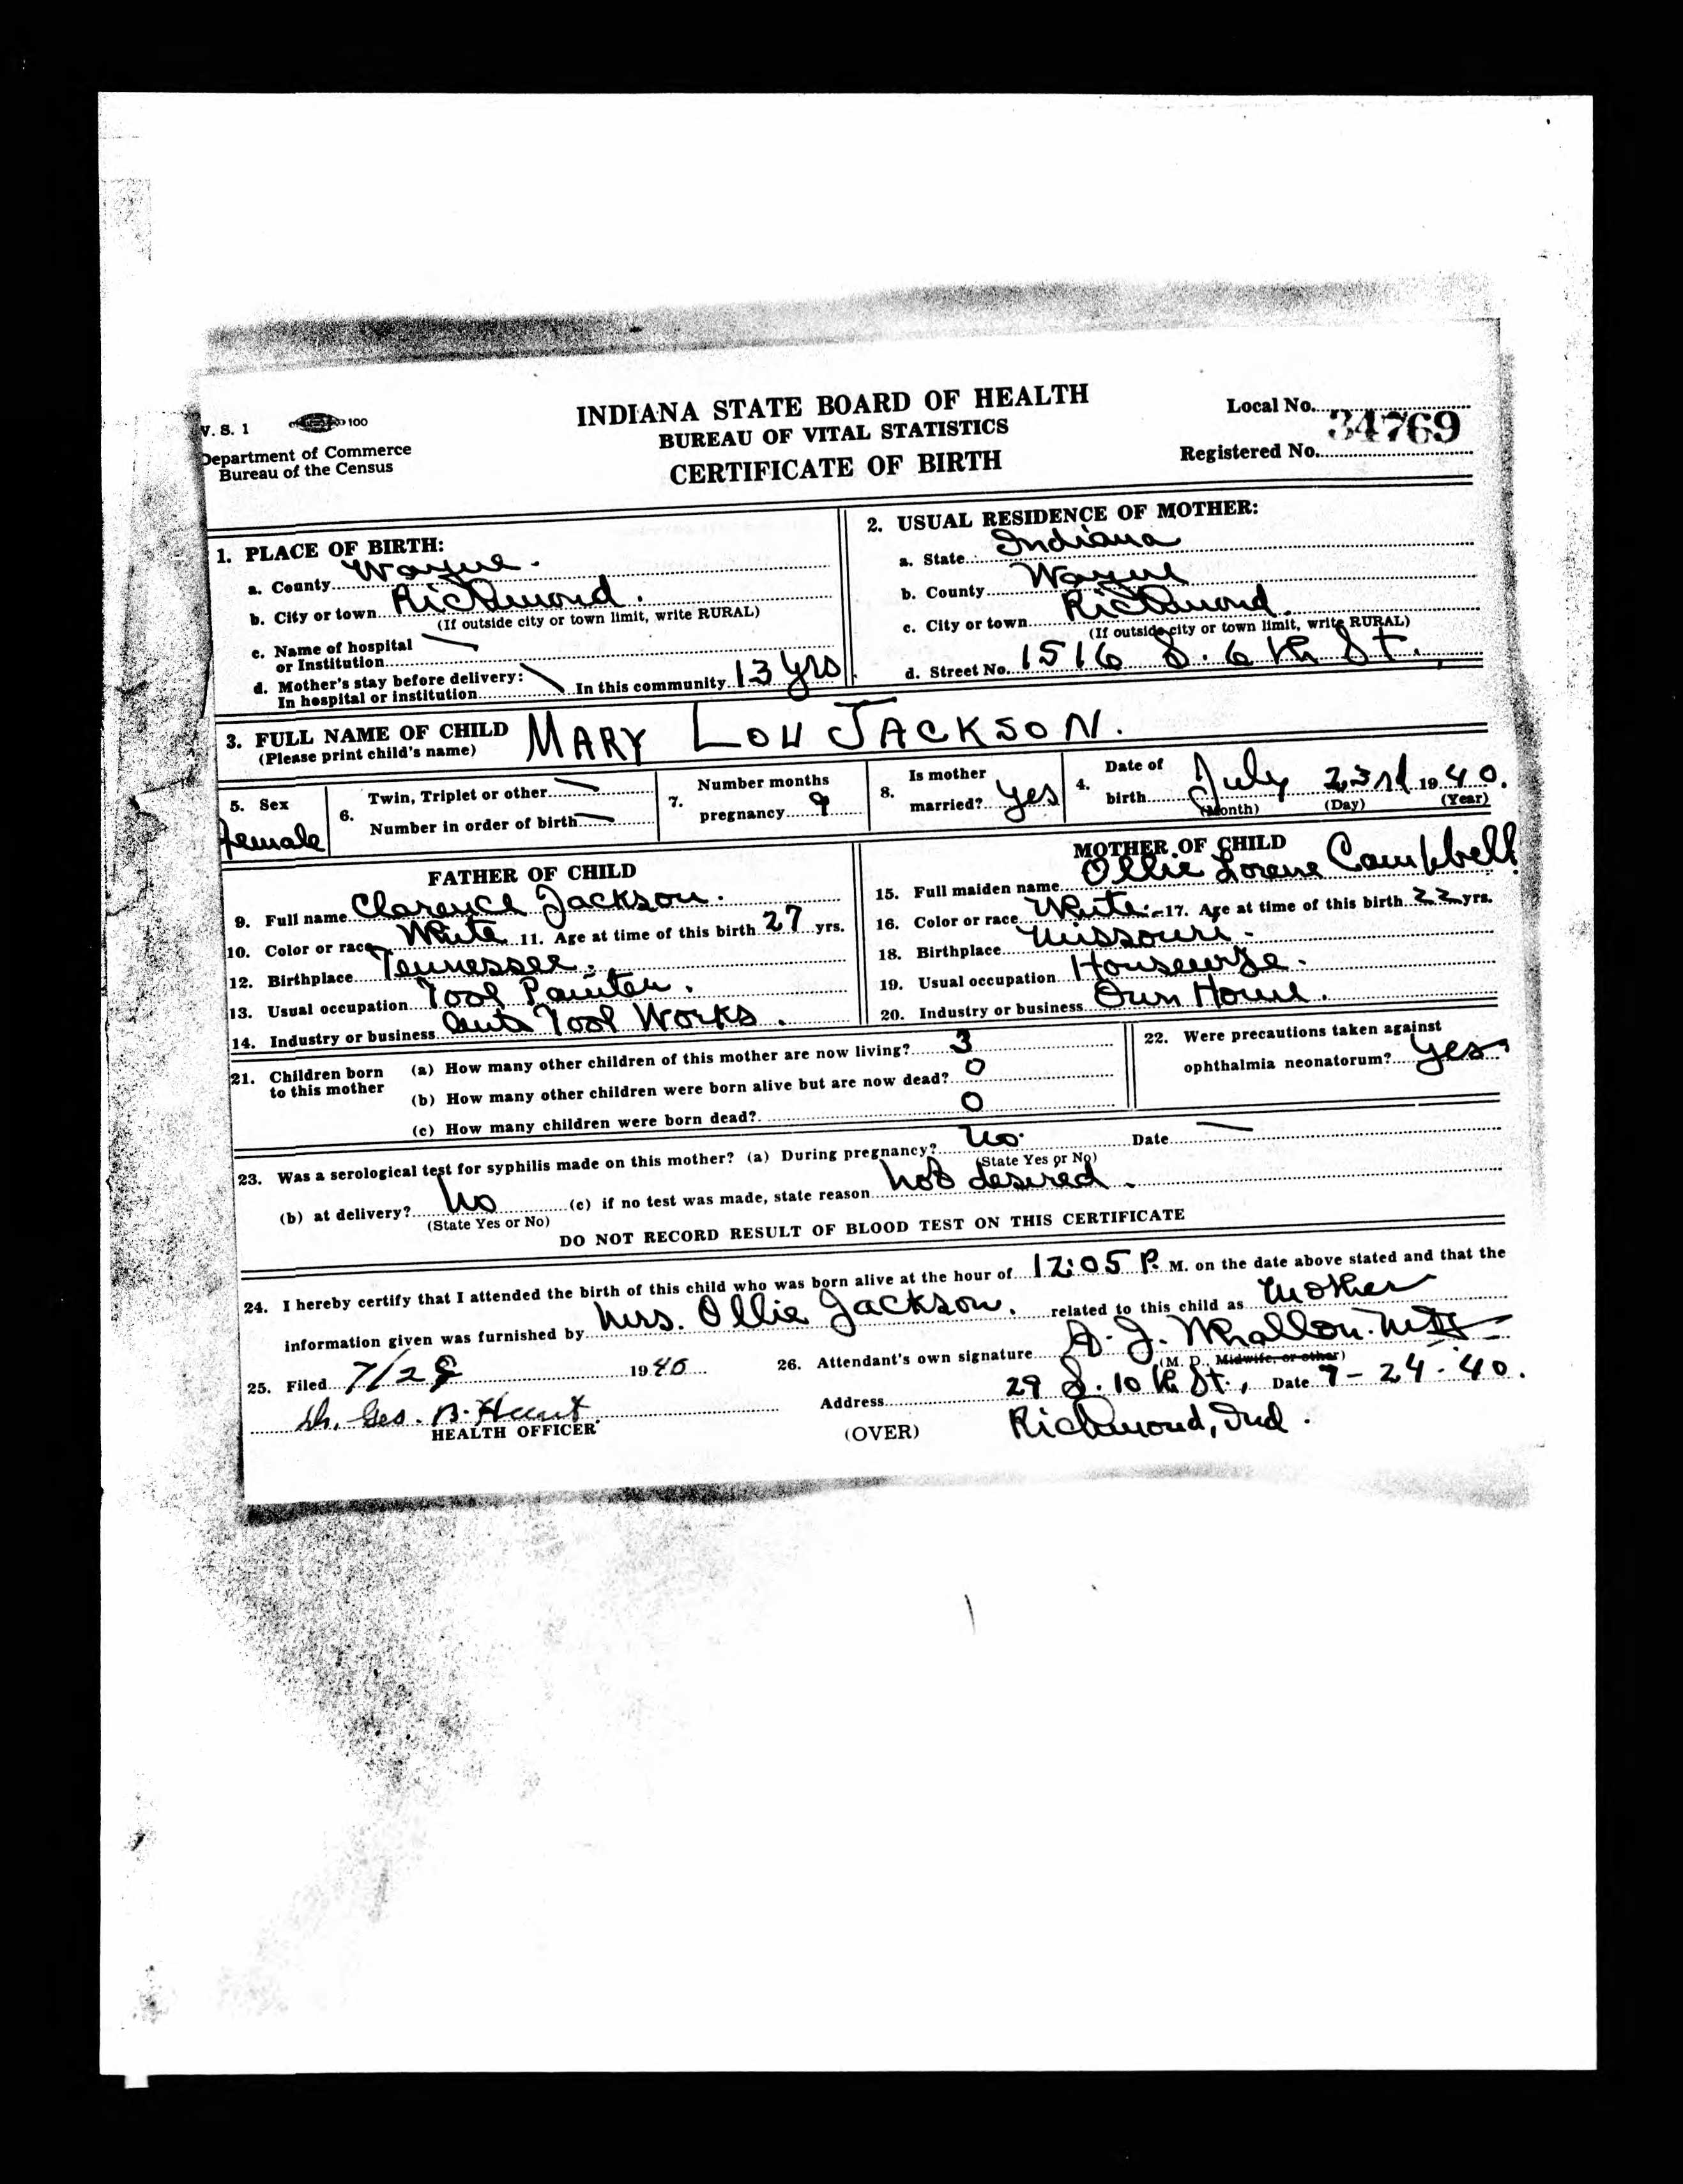 V. S. 1 100
Department of Commerce
Bureau of the Census
INDIANA STATE BOARD OF HEALTH
BUREAU OF VITAL STATISTICS
CERTIFICATE OF BIRTH
Local No.
Registered No. 34769
1. PLACE OF BIRTH:
a. County Wayne.
b. City or town Richmond.
(If outside city or town limit, write RURAL)
c. Name of hospital
or Institution
d. Mother's stay before delivery:
In hospital or institution In this community 13 yrs.
2. USUAL RESIDENCE OF MOTHER:
a. State Indiana
b. County Wayne
c. City or town Richmond.
(If outside city or town limit, write RURAL)
d. Street No. 1516 S. 6 th St.
3. FULL NAME OF CHILD MARY LOU JACKSON.
(Please print child's name)
5. Sex
female
6. Twin, Triplet or other
Number in order of birth
7. Number months
pregnancy 9
8. Is mother
married? yes
4. Date of
birth July 23rd 1940.
(Month) (Day) (Year)
FATHER OF CHILD
9. Full name Clarence Jackson.
10. Color or race White 11. Age at time of this birth 27 yrs.
12. Birthplace Tennessee.
13. Usual occupation Tool Painter.
14. Industry or business Tool Works.
MOTHER OF CHILD
15. Full maiden name Ollie Lorene Campbell
16. Color or race White. 17. Age at time of this birth 22 yrs.
18. Birthplace Missouri.
19. Usual occupation Housewife.
20. Industry or business Own Home.
21. Children born
to this mother
(a) How many other children of this mother are now living? 3
(b) How many other children were born alive but are now dead? 0
(c) How many children were born dead? 0
22. Were precautions taken against
ophthalmia neonatorum? yes
23. Was a serological test for syphilis made on this mother? (a) During pregnancy? no. Date
(State Yes or No)
(b) at delivery? No (c) if no test was made, state reason not desired.
(State Yes or No)
DO NOT RECORD RESULT OF BLOOD TEST ON THIS CERTIFICATE
24. I hereby certify that I attended the birth of this child who was born alive at the hour of 12:05 P. M. on the date above stated and that the
information given was furnished by Mrs. Ollie Jackson. related to this child as Mother
25. Filed 7/28 1940
Dr. Geo. B. Hunt.
HEALTH OFFICER
26. Attendant's own signature A. J. Whallon. M.D.
(M. D., Midwife, or other)
Address 29 S. 10 th St., Date 7-24-'40.
(OVER) Richmond, Ind.